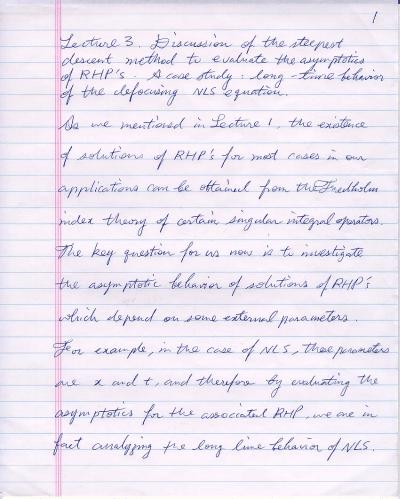 1
Lecture 3. Discussion of the steepest
descent method to evaluate the asymptotics
of RHP's. A case study: long-time behavior
of the defocusing NLS equation.
As we mentioned in Lecture 1, the existence
of solutions of RHP's for most cases in our
applications can be obtained from the Fredholm
index theory of certain singular integral operators.
The key question for us now is to investigate
the asymptotic behavior of solutions of RHP's
which depend on some external parameters.
For example, in the case of NLS, these parameters
are x and t, and therefore by evaluating the
asymptotics for the associated RHP, we are in
fact analyzing the long time behavior of NLS.